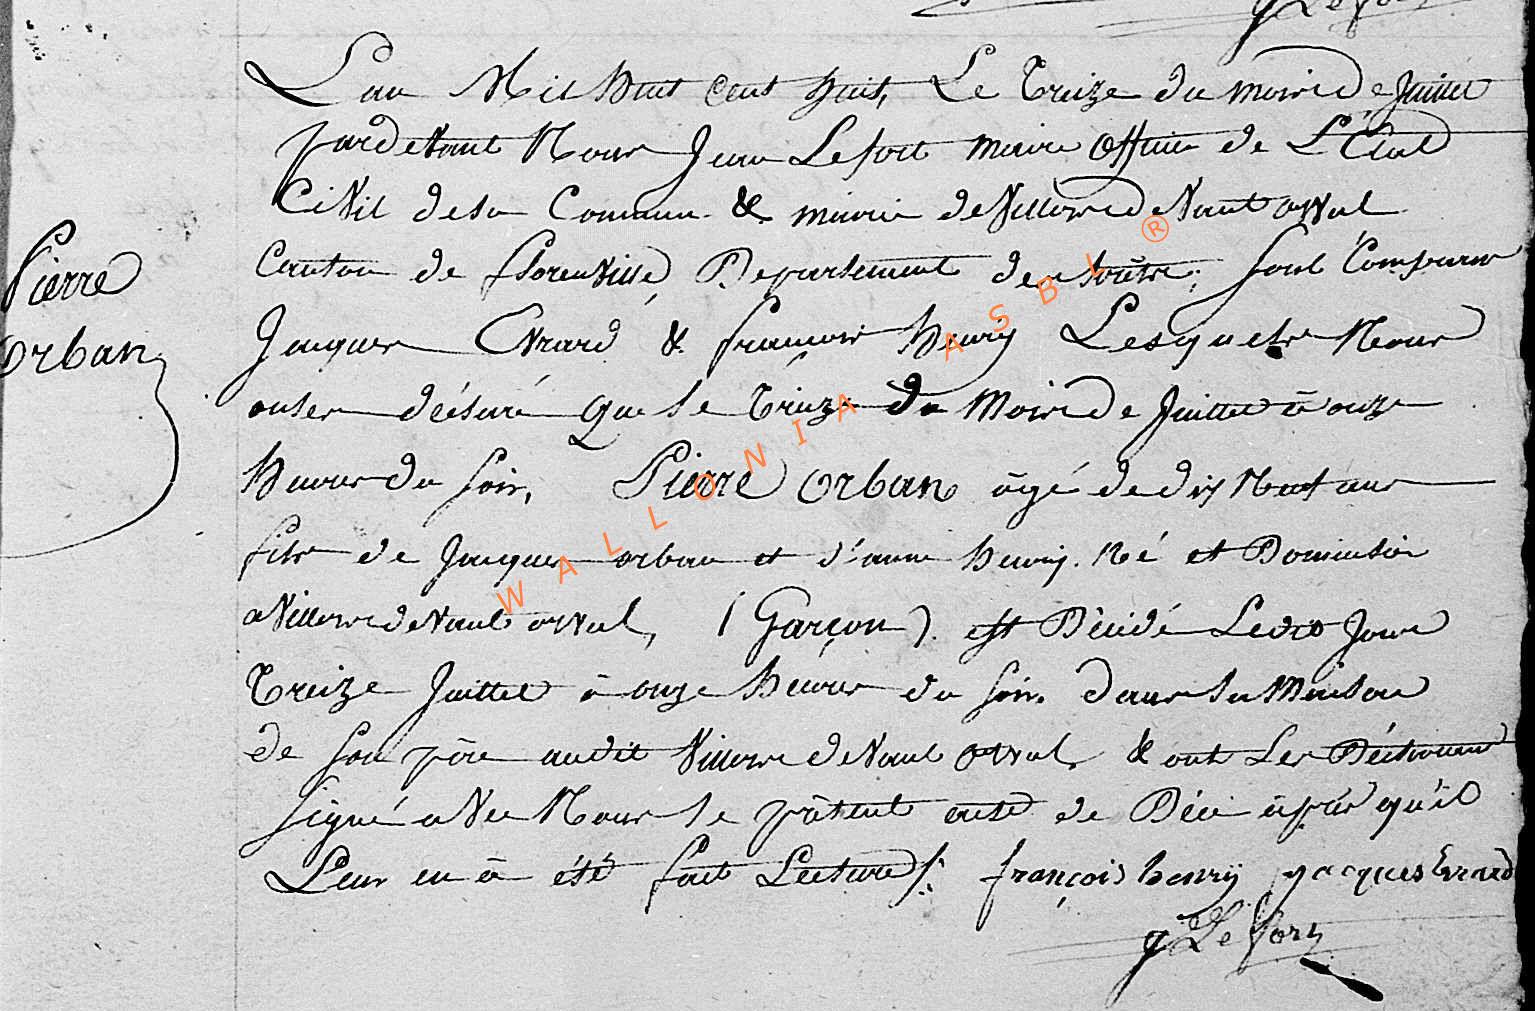 L'an Mil huit cent huit, Le Treize du mois de Juillet
pardevant Nous Jean Lefort maire officier de L'Etat
Civil de la Commune & mairie de Villers devant orval
Canton de florenville, Departement des forêts, sont Comparus
Jacques Evrard & françois henry Lesquels Nous
Pierre
orban
ont déclaré que le Treize du Mois de Juillet à onze
heures du soir, Pierre orban âgé de dix Neuf ans
fils de Jacques orban et d'anne henry. Né et Domicilié
a Villers devant orval, (Garçon). est Décédé Ledit Jour
Treize Juillet à onze heures du soir. dans la Maison
de son père audit Villers devant orval, & ont Les Déclarants
signé avec Nous le présent acte de Décè après qu'il
Leur en à été fait Lecture/. françois henry jacques Evrard
J Lefort
WALLONIA ASBL ®